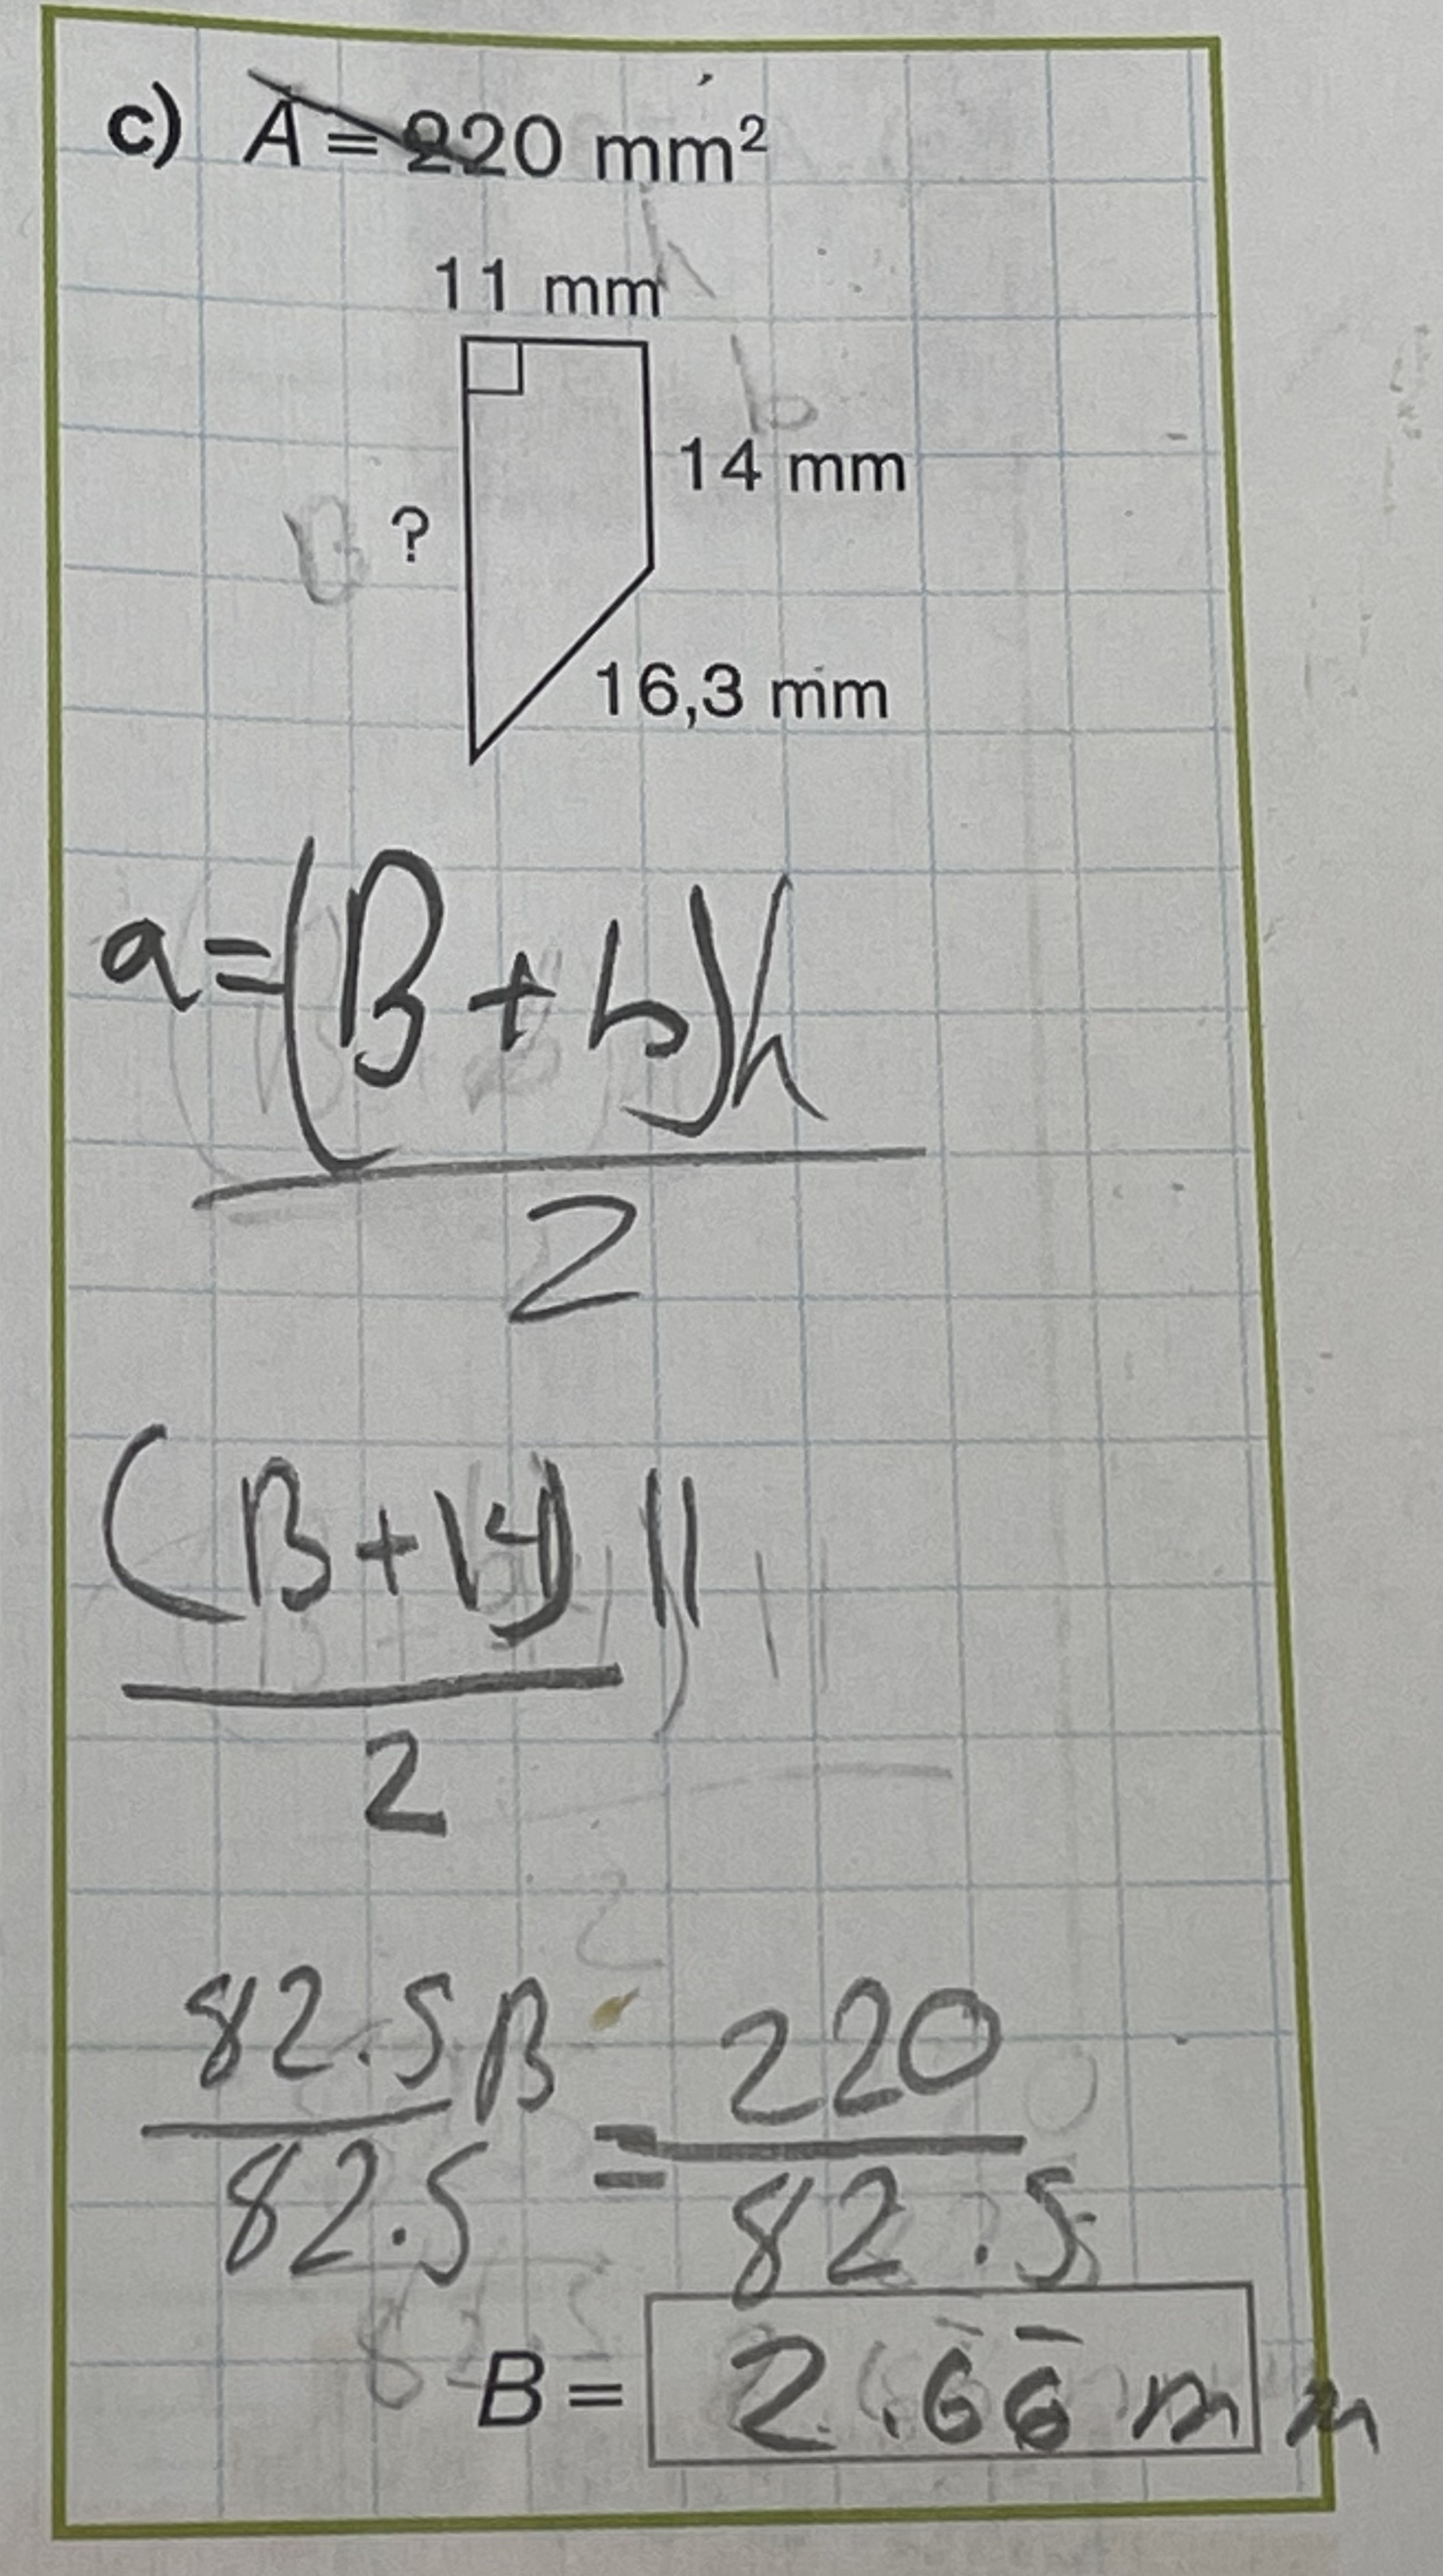 c) A = 220 mm²
11 mm
h
b
14 mm
B ?
16,3 mm
a = (B + b)h
2
(B + 14) 11
2
82.5 B = 220
82.5 82.5
B = 2.66 mm